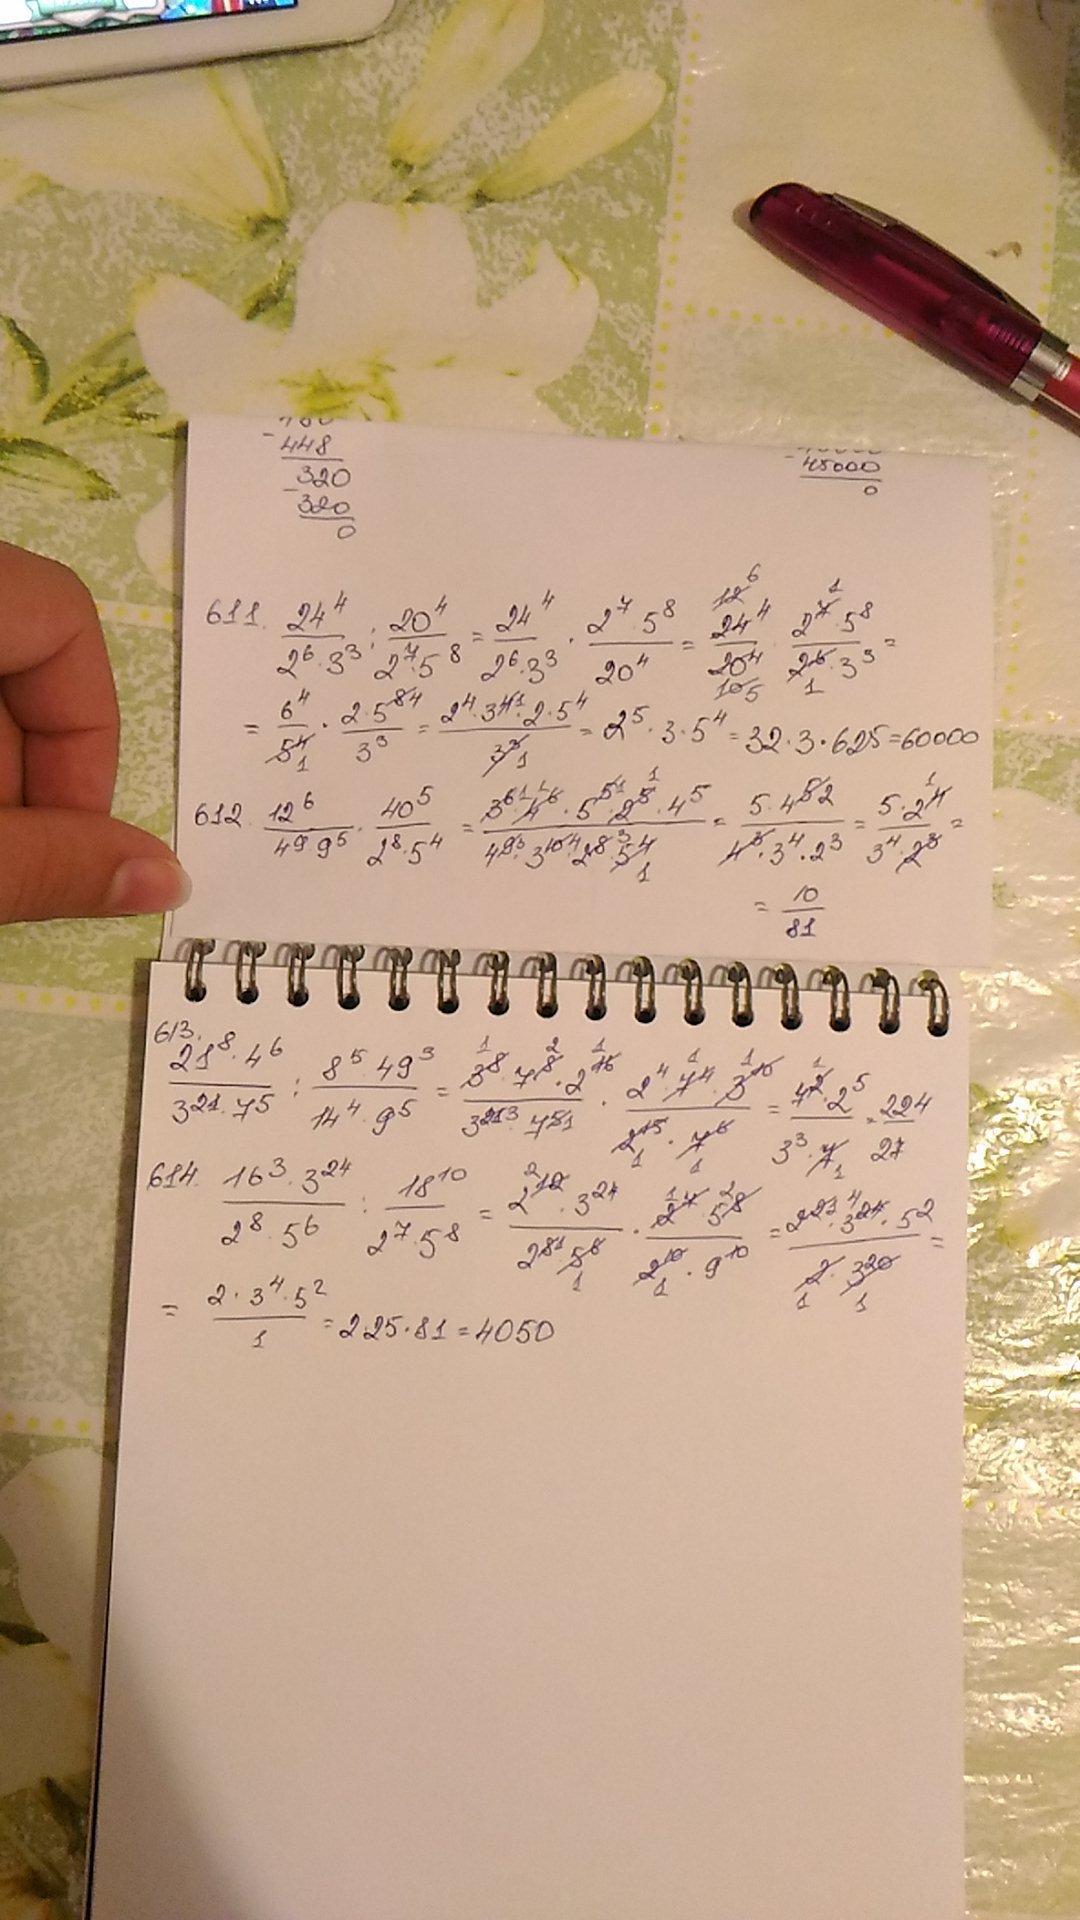 - 448
320
- 320
0
- 45000
0
611. 24⁴/(2⁶·3³) : 20⁴/(2⁷·5⁸) = 24⁴/(2⁶·3³) · (2⁷·5⁸)/20⁴ = 24⁴/20⁴ · (2⁷·5⁸)/(2⁶·3³) =
= 6⁴/5⁴ · (2·5⁸)/3³ = (2⁴·3⁴·2·5⁴)/3³ = 2⁵·3·5⁴ = 32·3·625 = 60000
612. 12⁶/(4⁹·9⁵) · 40⁵/(2⁸·5⁴) = (3⁶·4⁶·5⁵·2⁵·4⁵)/(4⁹·3¹⁰·2⁸·5⁴) = (5·4⁵)/(4³·3⁴·2³) = (5·2⁴)/(3⁴·2³) =
= 10/81
613. (21⁸·4⁶)/(3²¹·7⁵) : (8⁵·49³)/(14⁴·9⁵) = (3⁸·7⁸·2¹⁶)/(3²¹·7⁵) · (2⁴·7⁴·3¹⁰)/(2¹⁵·7⁶) = (7²·2⁵)/(3³·7) = 224/27
614. (16³·3²⁴)/(2⁸·5⁶) : 18¹⁰/(2⁷·5⁸) = (2¹²·3²⁴)/(2⁸·5⁶) · (2⁷·5⁸)/(2¹⁰·9¹⁰) = (2²·3²⁴·5²)/(2·3²⁰) =
= (2·3⁴·5²)/1 = 2·25·81 = 4050